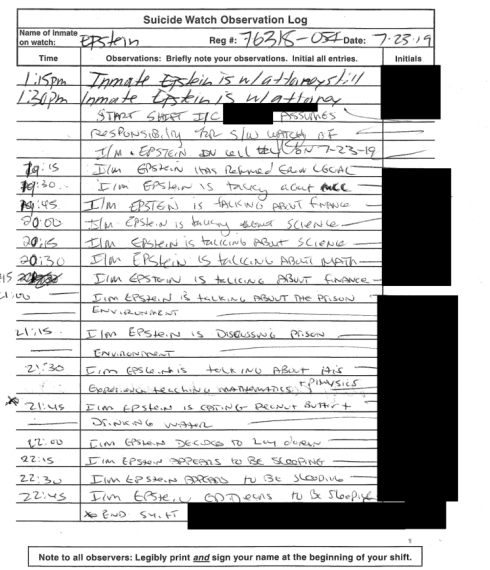 Suicide Watch Observation Log
Name of Inmate on watch: Epstein Reg #: 76318-054 Date: 7-23-19
Time Observations: Briefly note your observations. Initial all entries. Initials
1:15pm Inmate Epstein is w/ attorney still
1:30pm Inmate Epstein is w/ attorney
START SHIFT I/C ASSUMES
RESPONSIBILITY FOR S/W WATCH OF
I/M EPSTEIN IN Cell ON 7-23-19
19:15 I/m EPSTEIN Has Returned From LEGAL
19:30 I/m EPSTEIN is talking about MCC
19:45 I/M EPSTEIN is TALKING ABOUT FINANCE
20:00 I/m EPSTEIN is talking about SCIENCE
20:15 I/M EPSTEIN is talking ABOUT SCIENCE
20:30 I/M EPSTEIN is talking ABOUT MATH
45 I/m EPSTEIN is talking ABOUT FINANCE
21:00 I/m EPSTEIN is talking ABOUT THE PRISON
ENVIRONMENT
21:15 I/M EPSTEIN is DISCUSSING PRISON
ENVIRONMENT
21:30 I/m EPSTEIN is talking ABOUT His
Experience teaching MATHEMATICS + PHYSICS
* 21:45 I/m EPSTEIN is EATING PEANUT BUTTER +
DRINKING WATER
22:00 I/m EPSTEIN DECIDED TO LAY DOWN
22:15 I/m EPSTEIN APPEARS to BE SLEEPING
22:30 I/m EPSTEIN APPEARS to BE SLEEPING
22:45 I/m EPSTEIN APPEARS to BE Sleeping
* END SHIFT
Note to all observers: Legibly print and sign your name at the beginning of your shift.